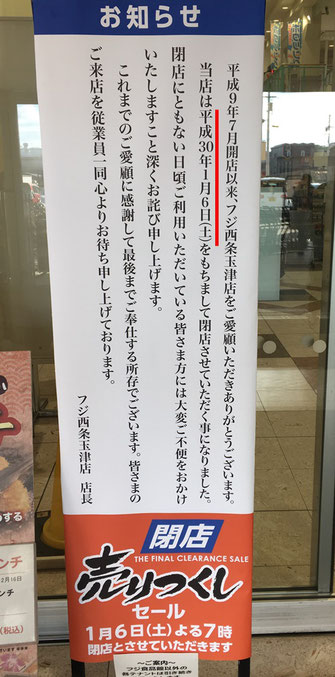 お知らせ
平成9年7月開店以来、フジ西条玉津店をご愛顧いただきありがとうございます。
当店は平成30年1月6日(土)をもちまして閉店させていただく事になりました。
閉店にともない日頃ご利用いただいている皆さま方には大変ご不便をおかけ
いたしますこと深くお詫び申し上げます。
これまでのご愛顧に感謝して最後までご奉仕する所存でございます。皆さまの
ご来店を従業員一同心よりお待ち申し上げております。
フジ西条玉津店 店長
閉店
THE FINAL CLEARANCE SALE
売りつくし
セール
1月6日(土)よる7時
閉店とさせていただきます
〜ご案内〜
フジ食品館以外の
各テナントは引き続き
する
ンチ
2月16日
ンチ
(税込)